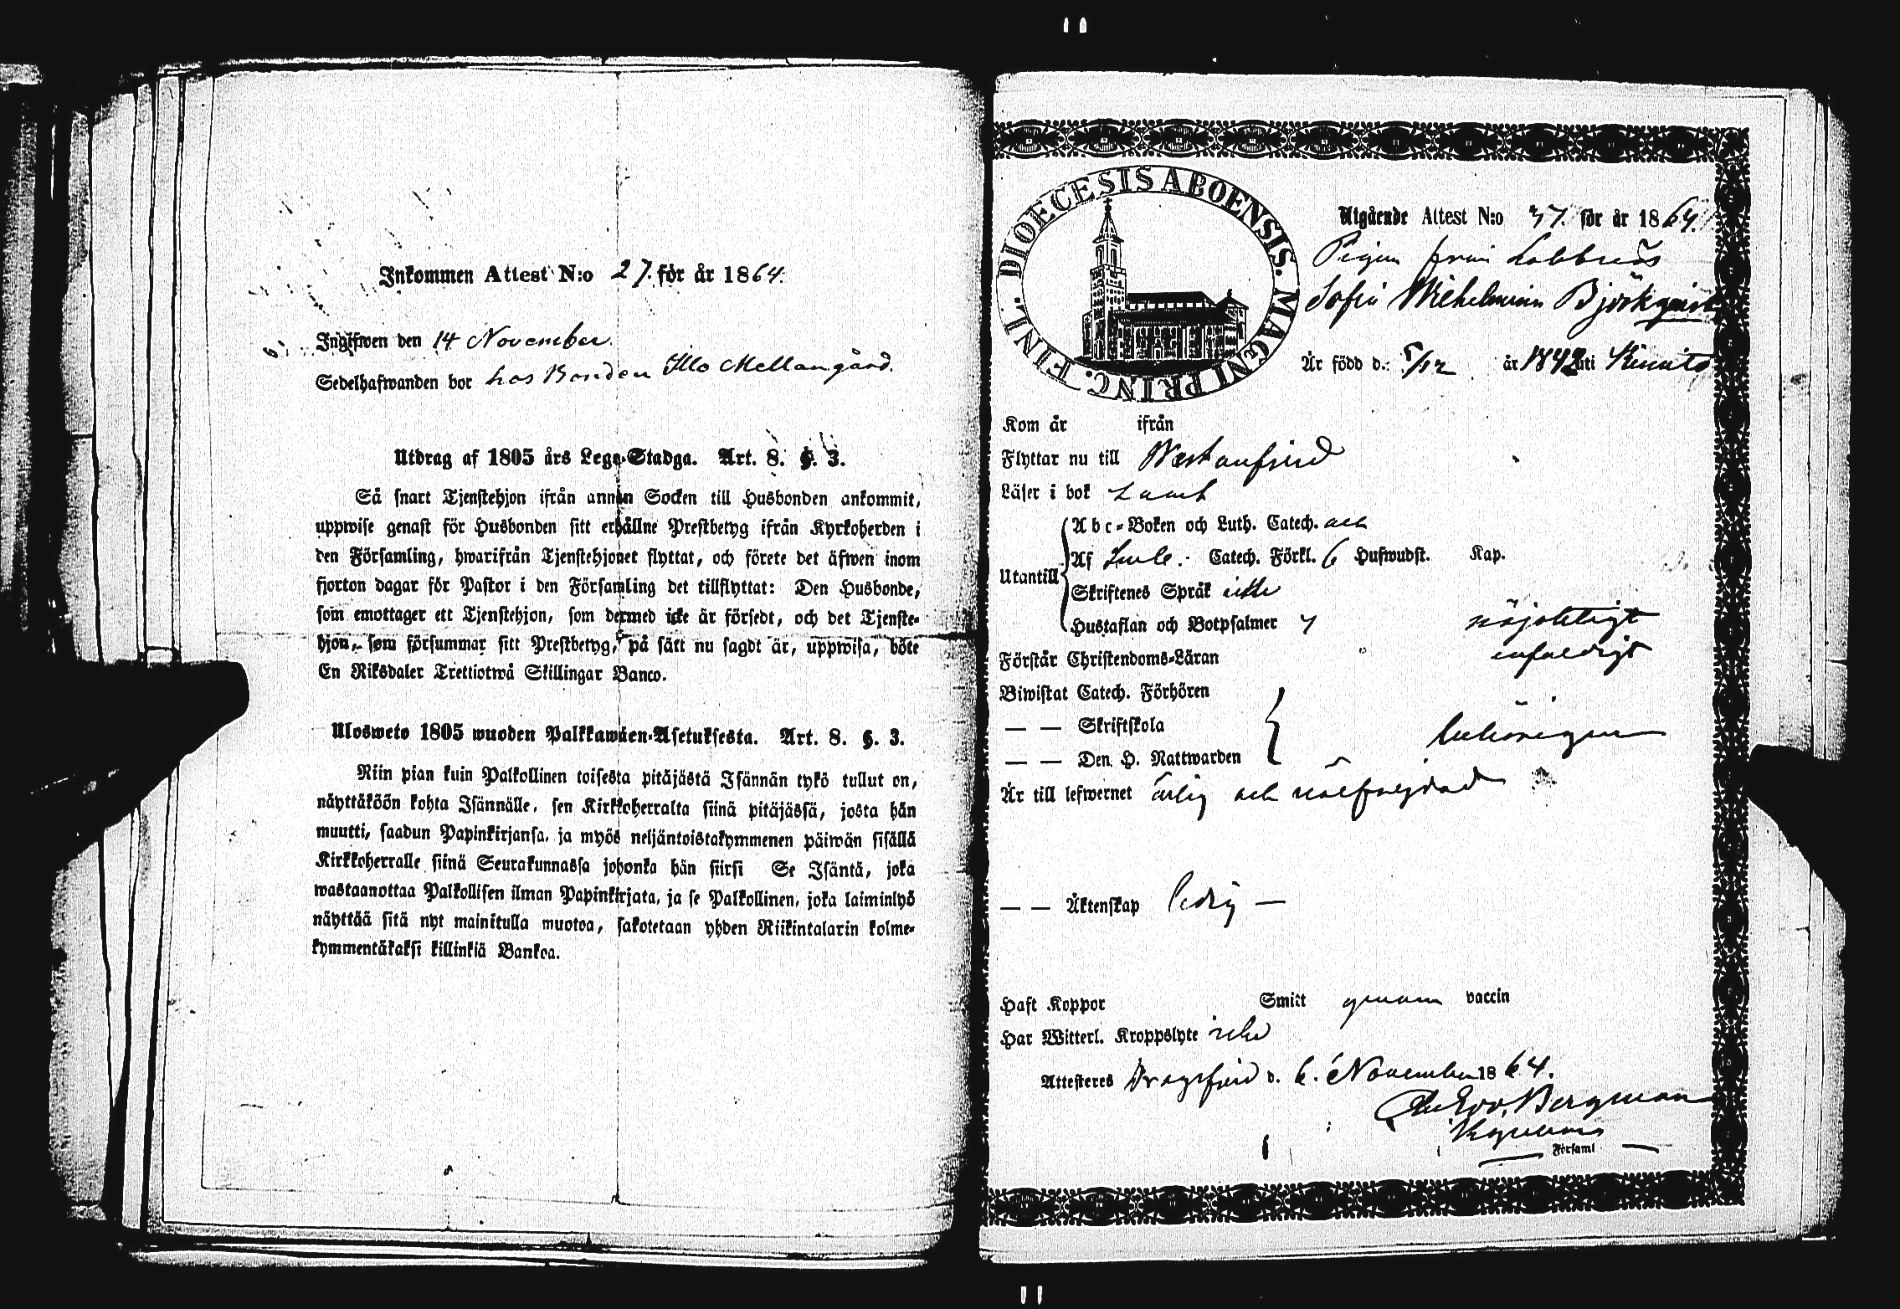 Inkommen Attest N:o 27. för år 1864.
Ingifwen den 14 November.
Sedelhafwanden bor hos Bonden Illo Mellangård.
Utdrag af 1805 års Lego-Stadga. Art. 8. §. 3.
Så snart Tjenstehjon ifrån annan Socken till Husbonden ankommit,
uppwise genast för Husbonden sitt erhållne Prestbetyg ifrån Kyrkoherden i
den Församling, hwarifrån Tjenstehjonet flyttat, och förete det äfwen inom
fjorton dagar för Pastor i den Församling det tillflyttat: Den Husbonde,
som emottager ett Tjenstehjon, som dermed icke är försedt, och det Tjenste-
hjon, som försummar sitt Prestbetyg, på sätt nu sagdt är, uppwisa, böte
En Riksdaler Trettiotwå Skillingar Banco.
Ulosweto 1805 wuoden Palkkawäen-Asetuksesta. Art. 8. §. 3.
Niin pian kuin Palkollinen toisesta pitäjästä Isännän tykö tullut on,
näyttäköön kohta Isännälle, sen Kirkkoherralta siinä pitäjässä, josta hän
muutti, saadun Papinkirjansa, ja myös neljäntoistakymmenen päiwän sisällä
Kirkkoherralle siinä Seurakunnassa johonka hän siirsi Se Isäntä, joka
wastaanottaa Palkollisen ilman Papinkirjata, ja se Palkollinen, joka laiminlyö
näyttää sitä nyt mainitulla muotoa, sakotetaan yhden Riikintalarin kolme-
kymmentäkaksi killinkiä Bankoa.
FINL. DIOECESIS ABOENSIS. MAGNI PRINC.
Utgående Attest N:o 37. för år 1864.
Pigan från Labbnäs
Sofia Wilhelmina Björkqvist
Är född d.: 5/12 år 1842 uti Kimito
Kom år ifrån
Flyttar nu till Westanfjerd
Läser i bok samt
Utantill
Abc-Boken och Luth. Catech. och
Af Catech. Förkl. 6 Hufwudst. Kap.
Skriftenes Språk icke
Hustaflan och Botpsalmer 7 nöjaktigt
Förstår Christendoms-Läran enfaldigt
Biwistat Catech. Förhören
— — Skriftskola behörigen
— — Den H. Nattwarden
Är till lefwernet ärlig och wälfrejdad
— — Äktenskap ledig —
Haft Koppor Smitt genom vaccin
Har Witterl. Kroppslyte icke
Attesteres Dragsfjerd d. 6. November 1864.
Bergman
Församl